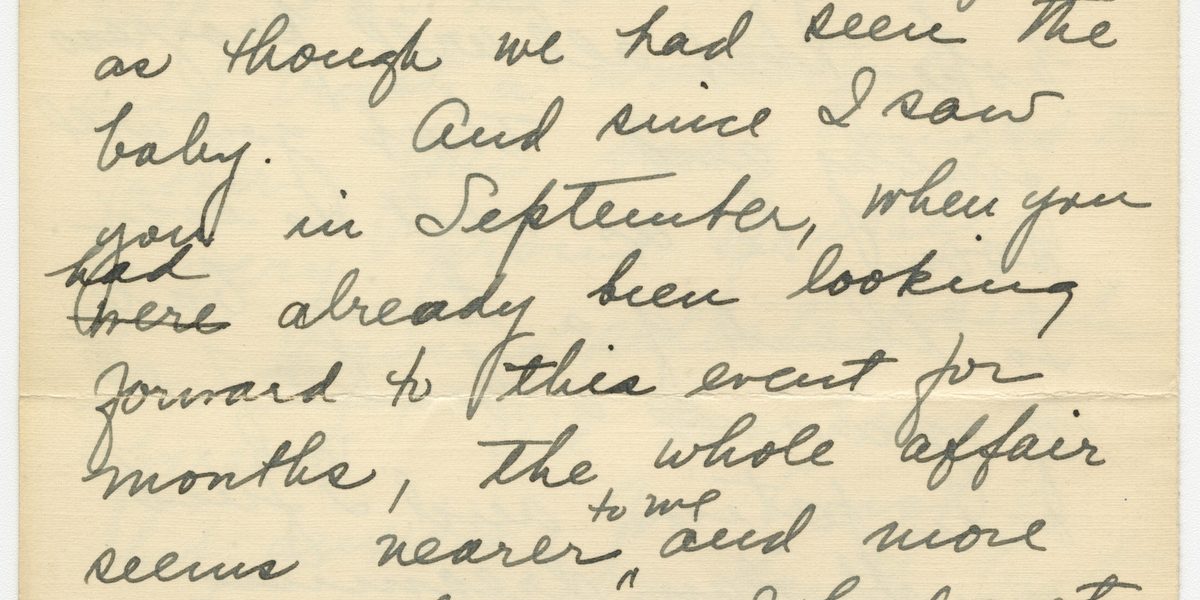 as though we had seen the
baby. And since I saw
you in September, when you
had
were already been looking
forward to this event for
months, the whole affair
to me
seems nearer and more